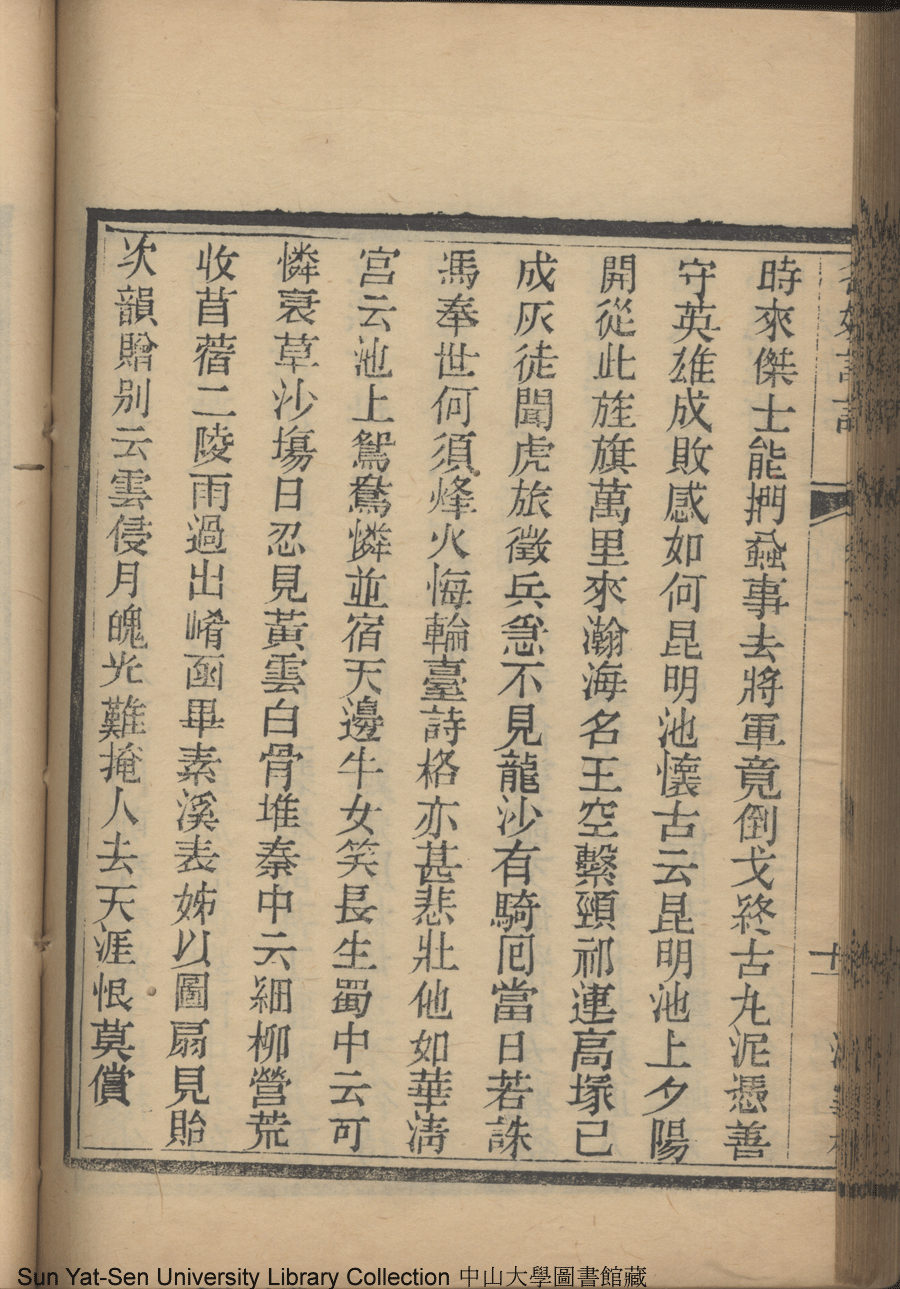 時來傑士能捫蝨事去將軍竟倒戈終古丸泥憑善
守英雄成敗感如何昆明池懷古云昆明池上夕陽
開從此旌旗萬里來瀚海名王空繫頸祁連高塚已
成灰徒聞虎旅徵兵急不見龍沙有騎囘當日若誅
馮奉世何須烽火悔輪臺詩格亦甚悲壯他如華淸
宮云池上鴛鴦憐並宿天邊牛女笑長生蜀中云可
憐衰草沙塲日忍見黃雲白骨堆秦中云細柳營荒
收苜蓿二陵雨過出崤函畢素溪表姊以圖扇見貽
次韻贈别云雲侵月魄光難掩人去天涯恨莫償
Sun Yat-Sen University Library Collection 中山大學圖書館藏